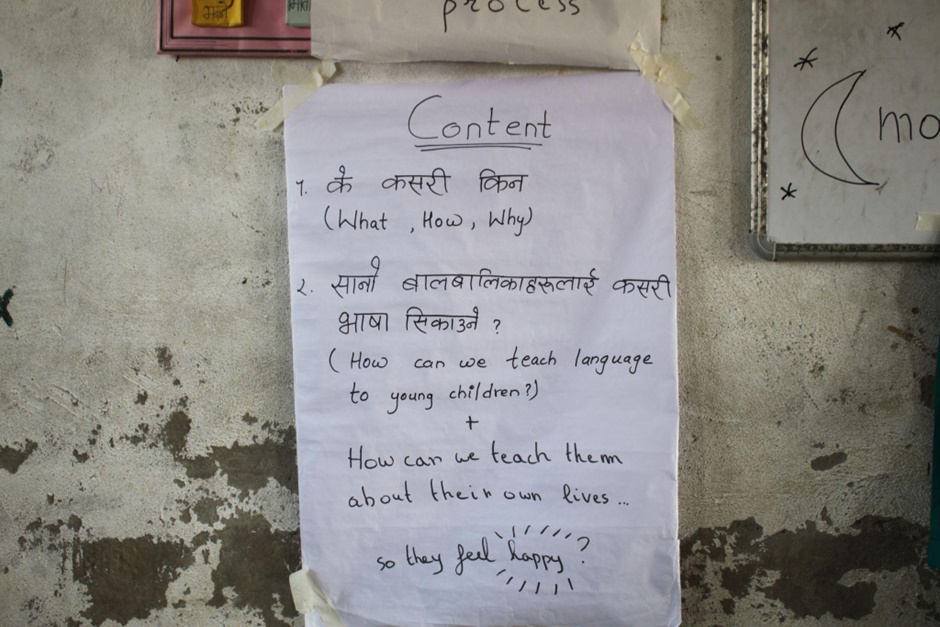 process
Content
१. के कसरी किन
(What , How , Why)
२. सानो बालबालिकाहरूलाई कसरी
भाषा सिकाउने ?
( How can we teach language
to young children?)
+
How can we teach them
about their own lives ...
so they feel happy ?
mo